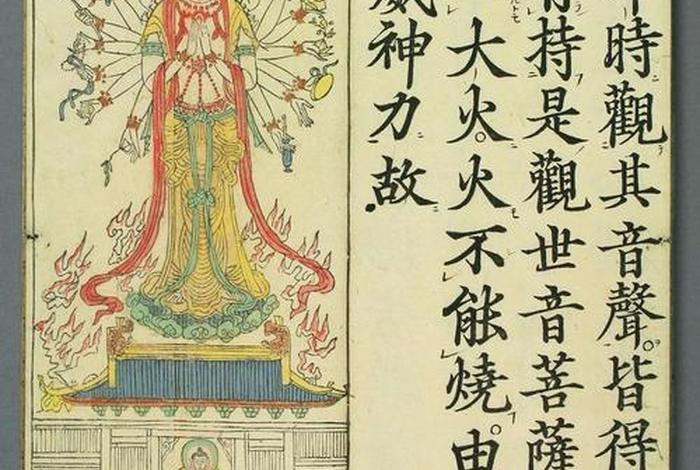 時觀其音聲。皆得
持是觀世音菩薩
大火。火不能燒。由
威神力故